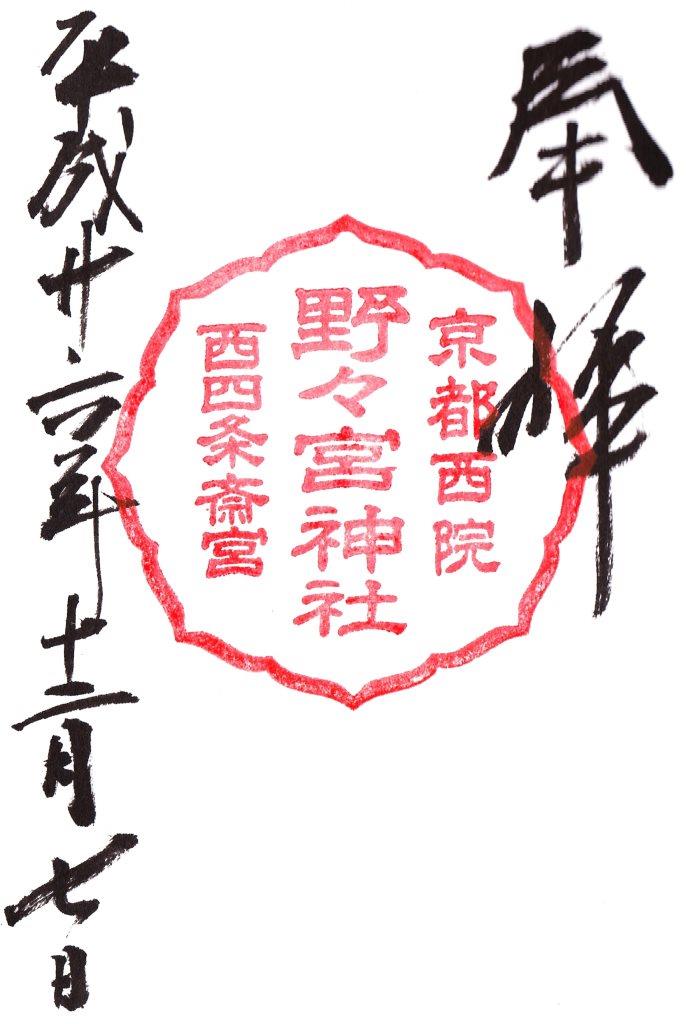 奉拝
京都西院
野々宮神社
西四条斎宮
平成廿六年十二月七日